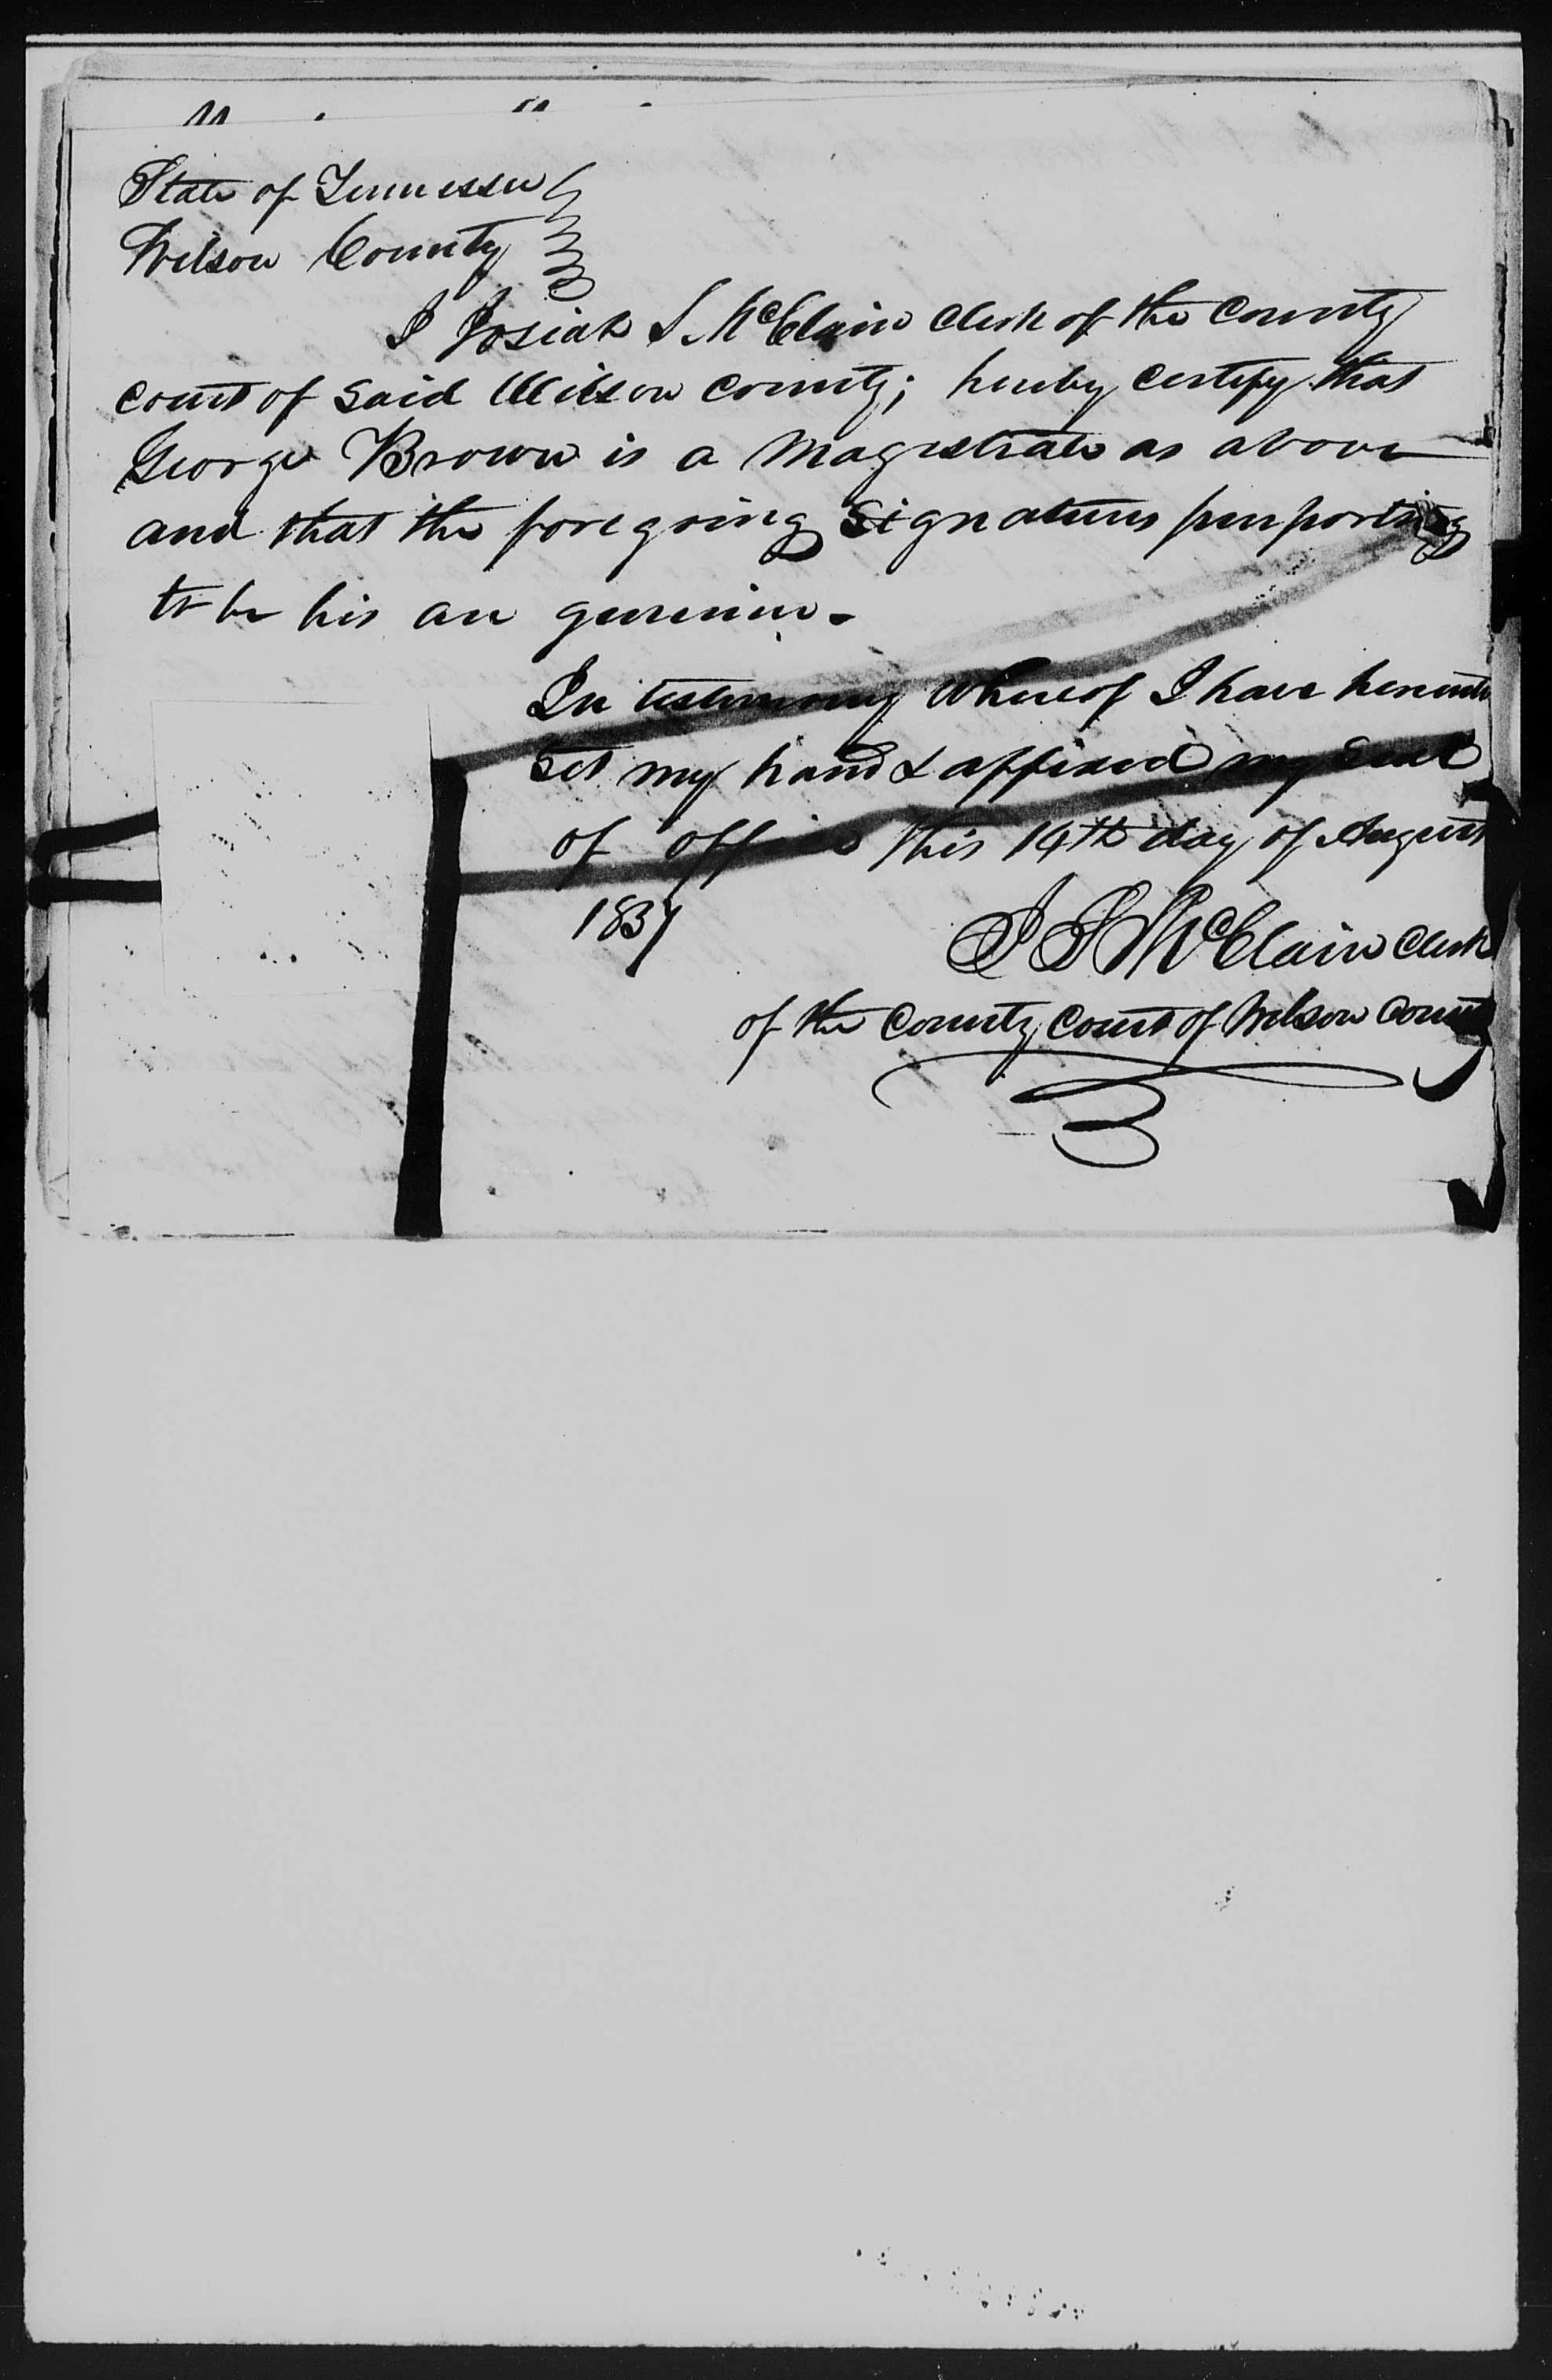 State of Tennessee
Wilson County
I Josiah S. McClain Clerk of the County
court of said Wilson county; hereby certify that
George Brown is a magistrate as above
and that the foregoing Signatures purporting
to be his are genuine.
In testimony whereof I have hereunto
set my hand & affixed my seal
of office this 14th day of August
1837
J S McClain Clerk
of the County Court of Wilson County